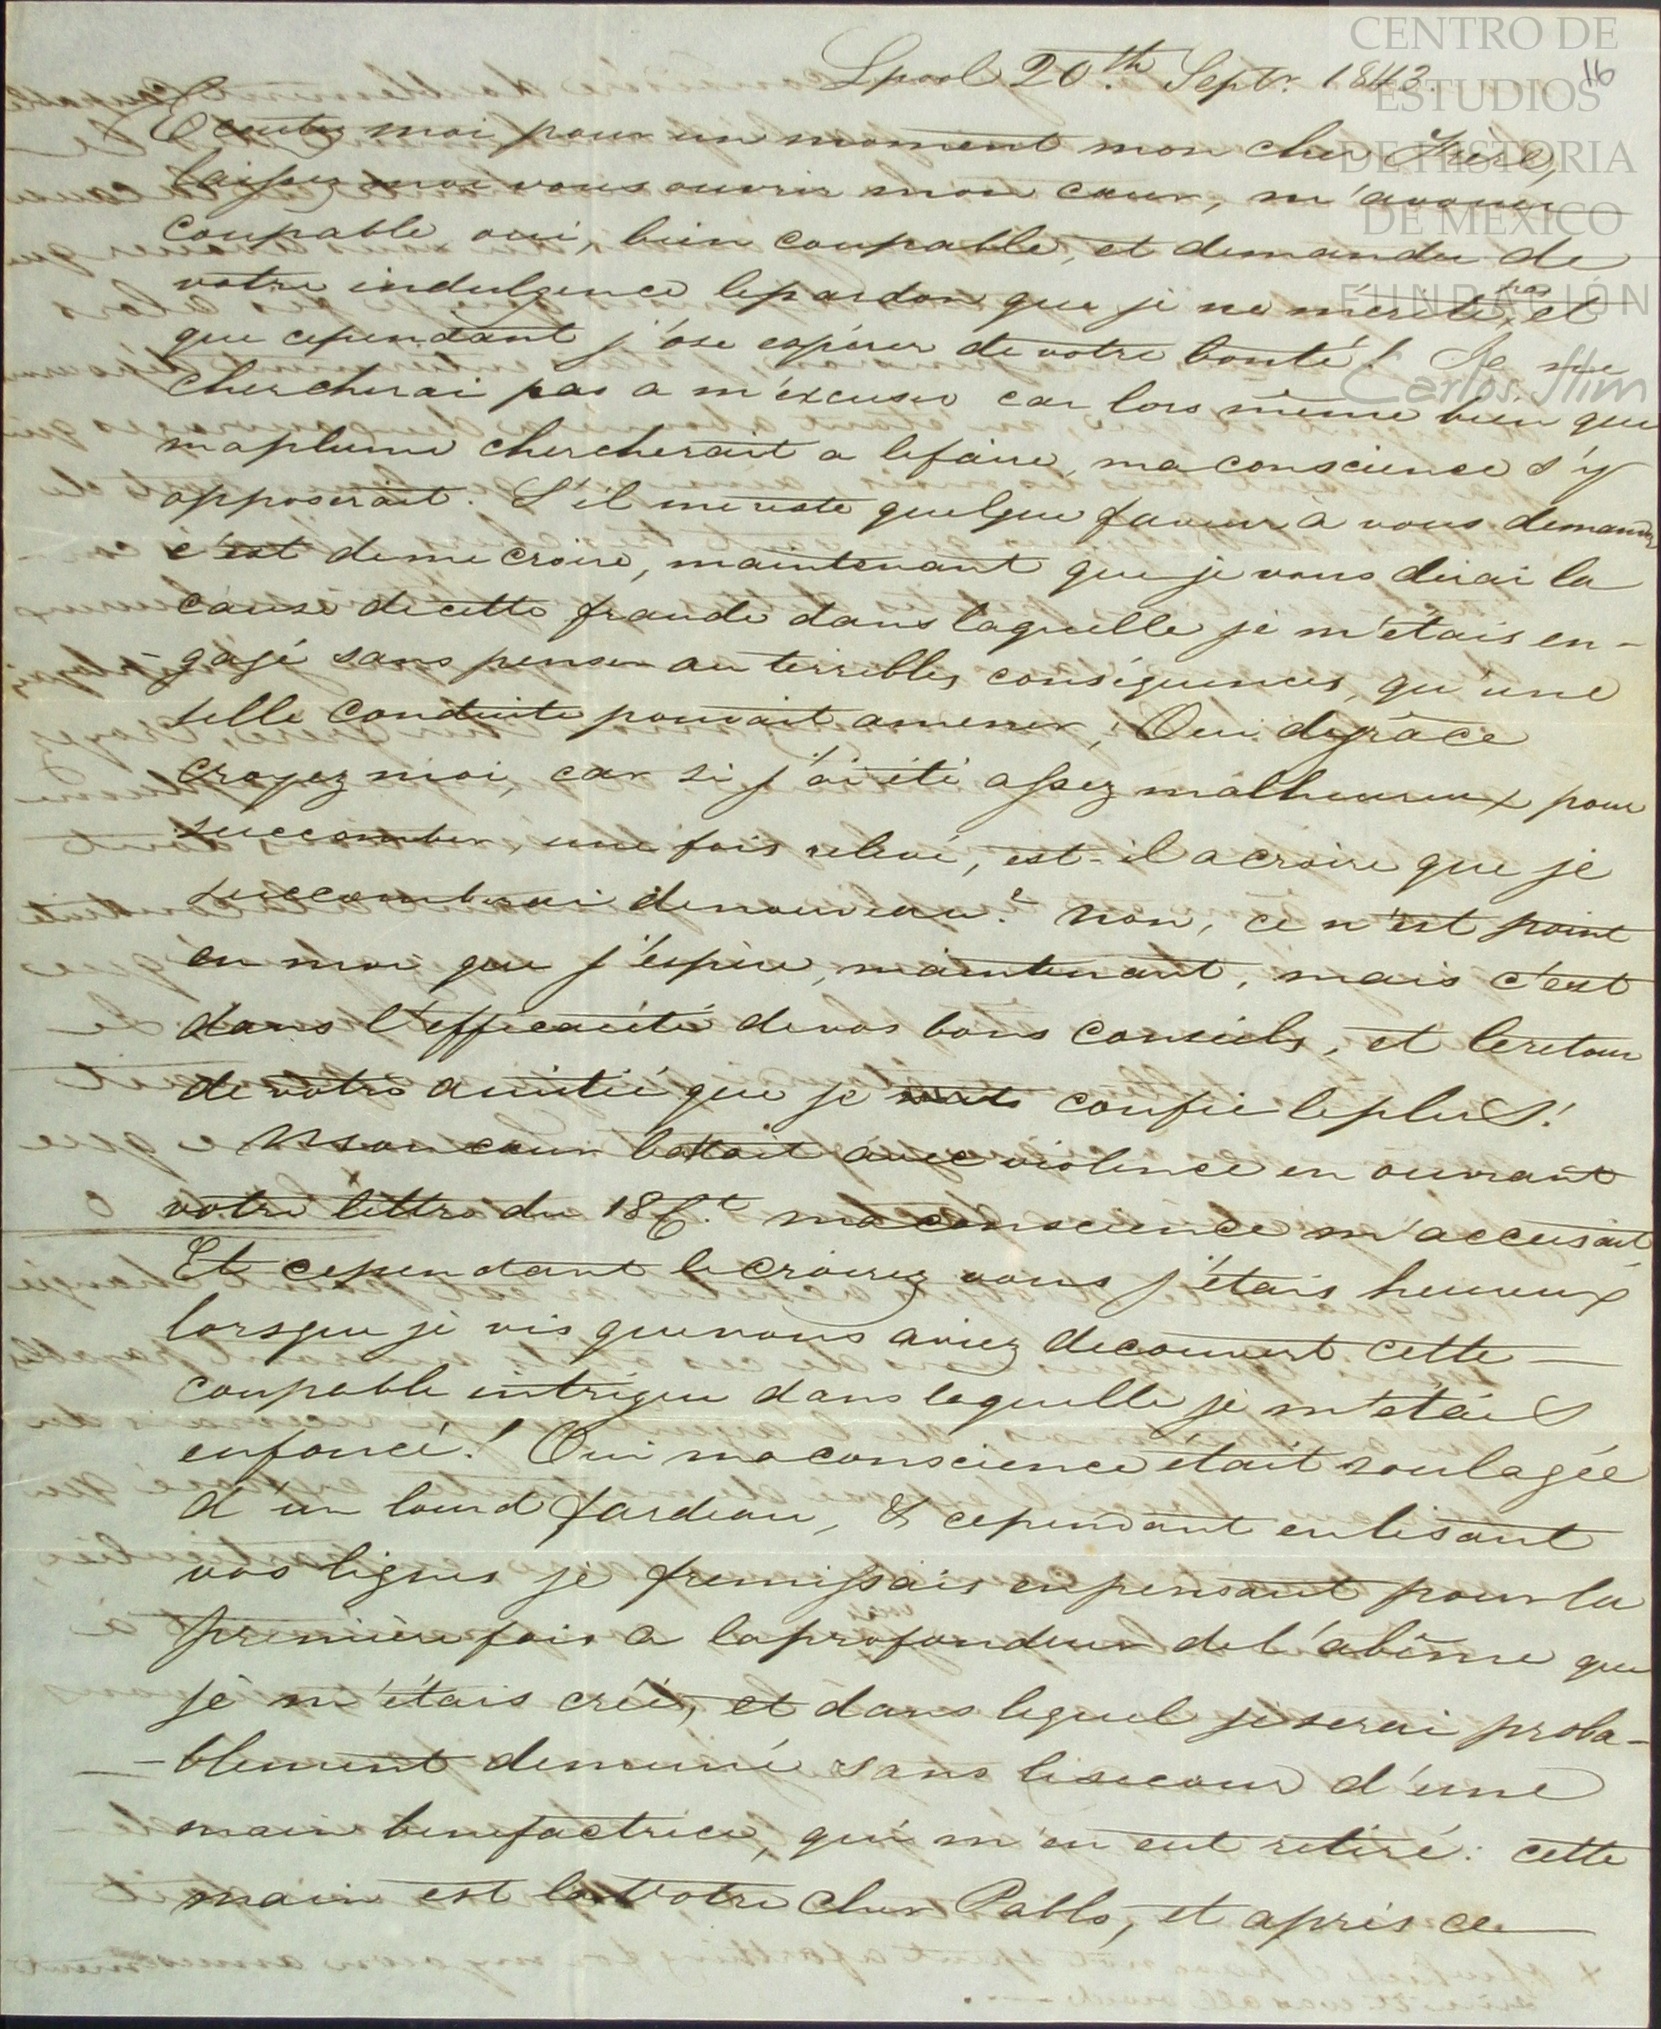 CENTRO DE
ESTUDIOS
DE HISTORIA
DE MEXICO
FUNDACIÓN
Carlos Slim
16
Lpool 20th Septr. 1843.
Ecoutez moi pour un moment mon cher Frère,
laissez moi vous ouvrir mon cœur, m'avouer
coupable oui, bien coupable, et demander de
votre indulgence le pardon que je ne mérite pas, et
que cependant j'ose espérer de votre bonté! Je ne
chercherai pas a m'excuser car lors même bien que
ma plume chercherait a le faire, ma conscience s'y
opposerait. S'il me reste quelque faveur à vous demander
c'est de me croire, maintenant que je vous dirai la
cause de cette fraude dans laquelle je m'étais en-
-gagé sans penser au terribles conséquences, qu'une
telle conduite pouvait amener, Oui de grâce
croyez moi, car si j'ai été assez malheureux pour
succomber, une fois relevé, est-il a croire que je
succomberai de nouveau? Non, ce n'est point
en moi que j'espère, maintenant, mais c'est
dans l'efficacité de vos bons conseils, et le retour
de votre amitié que je confie le plus!
Mon cœur battait avec violence en ouvrant
votre lettre du 18 Ct. ma conscience m'accusait
Et cependant le croirez vous j'étais heureux
lorsque je vis que vous aviez decouvert cette
coupable intrigue dans laquelle je m'étais
enfoncé! Oui ma conscience était soulagée
d'un lourd fardeau, & cependant en lisant
vos lignes je fremissais en pensant pour la
première fois a la profondeur de l'abîme que
je m'étais créé, et dans lequel je serai proba-
-blement demeuré sans le secour d'une
main benefactrice, qui m'en eut retiré: cette
main est la Votre cher Pablo, et après ce